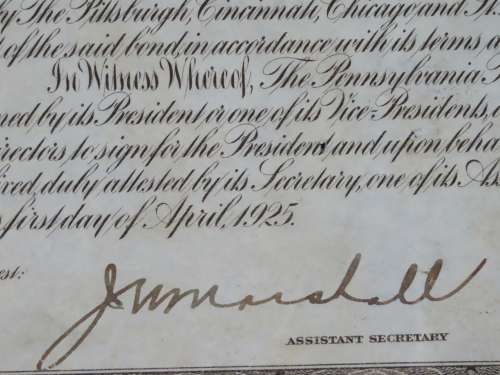 The Pittsburgh, Cincinnati, Chicago and
of the said bond, in accordance with its terms
In Witness Whereof, The Pennsylvania
by its President or one of its Vice-Presidents,
to sign for the President and upon
duly attested by its Secretary, one of its
first day of April, 1925.
Marshall
ASSISTANT SECRETARY